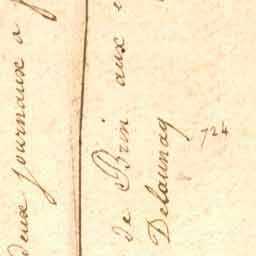 deux journaux a
de Brin aux
Delaunay
724